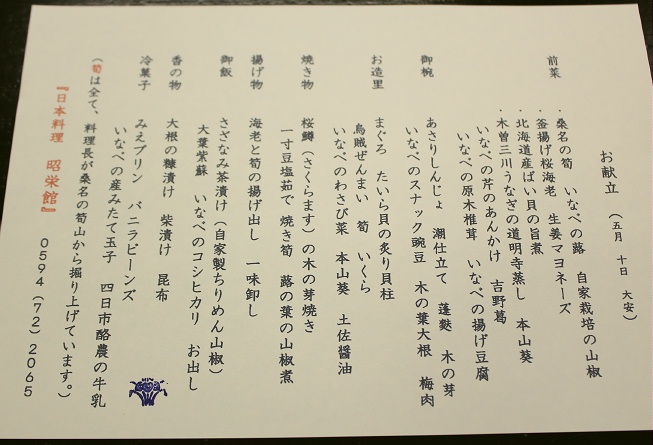 お献立　（五月　十日　大安）
前菜　・桑名の筍　いなべの蕗　自家栽培の山椒
・釜揚げ桜海老　生姜マヨネーズ
・北海道産ばい貝の旨煮
・木曽三川うなぎの道明寺蒸し　本山葵
いなべの芹のあんかけ　吉野葛
いなべの原木椎茸　いなべの揚げ豆腐
御椀　あさりしんじょ　潮仕立て　蓬麩　木の芽
いなべのスナック豌豆　木の葉大根　梅肉
お造里　まぐろ　たいら貝の炙り貝柱
烏賊ぜんまい　筍　いくら
いなべのわさび菜　本山葵　土佐醤油
焼き物　桜鱒（さくらます）の木の芽焼き
一寸豆塩茹で　焼き筍　蕗の葉の山椒煮
揚げ物　海老と筍の揚げ出し　一味卸し
御飯　さざなみ茶漬け（自家製ちりめん山椒）
大葉紫蘇　いなべのコシヒカリ　お出し
香の物　大根の糠漬け　柴漬け　昆布
冷菓子　みえプリン　バニラビーンズ
いなべの産みたて玉子　四日市酪農の牛乳
（筍は全て、料理長が桑名の筍山から掘り上げています。）
『日本料理　昭栄館』　0594（72）2065